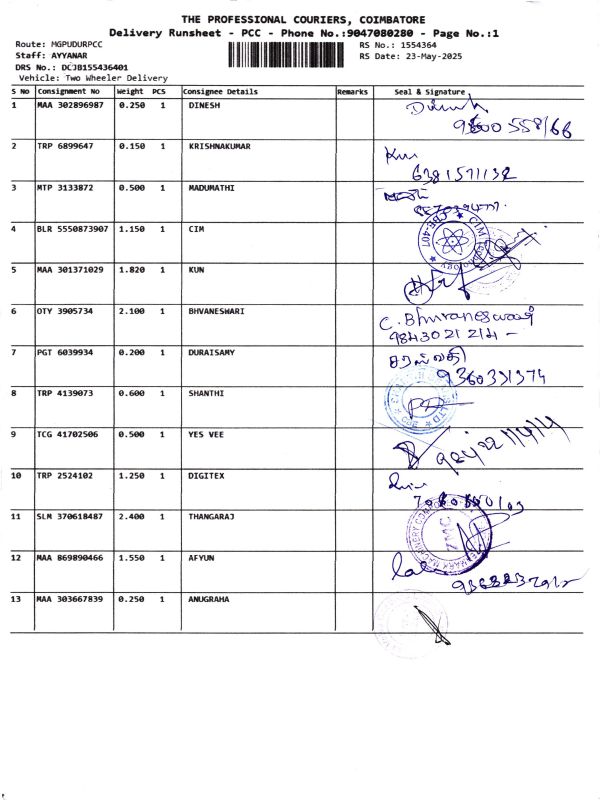 THE PROFESSIONAL COURIERS, COIMBATORE
Delivery Runsheet - PCC - Phone No.:9047080280 - Page No.:1
Route: MGPUDURPCC RS No.: 1554364
Staff: AYYANAR RS Date: 23-May-2025
DRS No.: DCJB155436401
Vehicle: Two Wheeler Delivery
S No Consignment No Weight PCS Consignee Details Remarks Seal & Signature
1 MAA 302896987 0.250 1 DINESH
2 TRP 6899647 0.150 1 KRISHNAKUMAR
6381571132
3 MTP 3133872 0.500 1 MADUMATHI
4 BLR 5550873907 1.150 1 CIM
5 MAA 301371029 1.820 1 KUN
6 OTY 3905734 2.100 1 BHVANESWARI
C. Bhuvaneswari
9843021214
7 PGT 6039934 0.200 1 DURAISAMY
சரஸ்வதி
9360331374
8 TRP 4139073 0.600 1 SHANTHI
9 TCG 41702506 0.500 1 YES VEE
10 TRP 2524102 1.250 1 DIGITEX
11 SLM 370618487 2.400 1 THANGARAJ
ZMC
12 MAA 869890466 1.550 1 AFYUN
13 MAA 303667839 0.250 1 ANUGRAHA